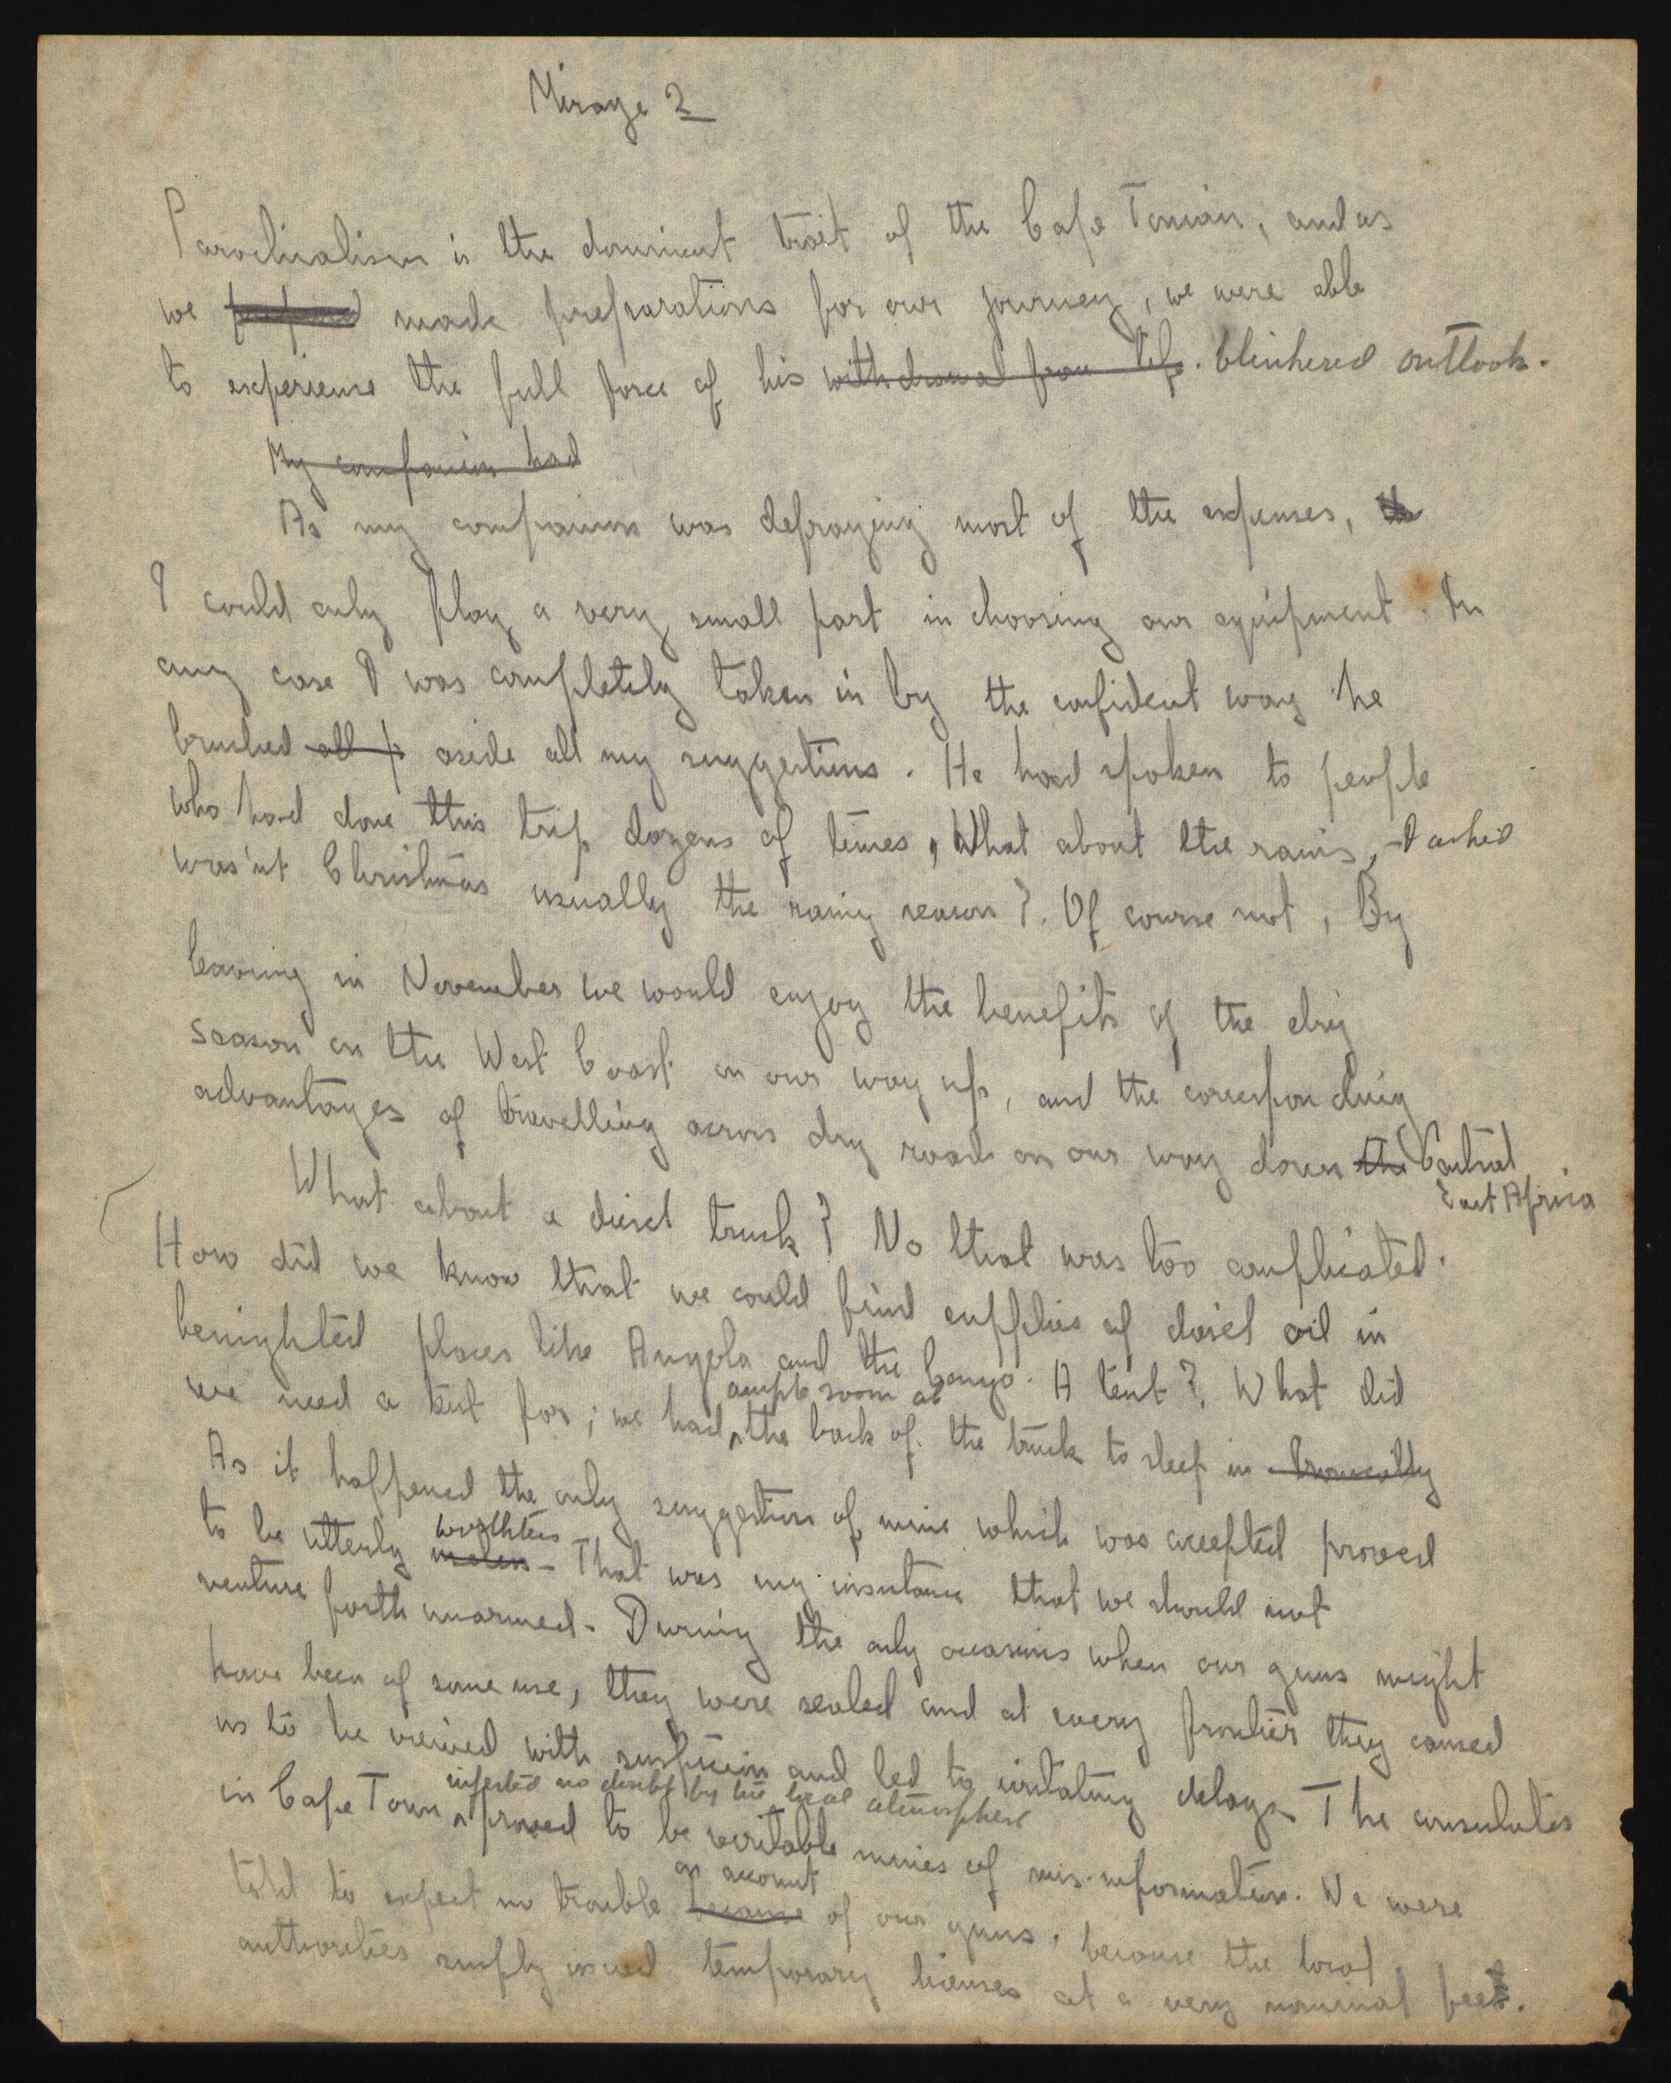 Mirage 2
Parochialism is the dominant trait of the Cape Tonian, and as
we prepared made preparations for our journey, we were able
to experience the full force of his withdrawal from life. blinkered outlook.
My companion had
As my companion was defraying most of the expenses, the
I could only play a very small part in choosing our equipment. In
any case I was completely taken in by the confident way he
brushed all p aside all my suggestions. He had spoken to people
who had done this trip dozens of times, What about the rains, I asked
was'nt Christmas usually the rainy season?. Of course not, By
leaving in November we would enjoy the benefits of the dry
season on the West Coast on our way up, and the corresponding
advantages of travelling across dry roads on our way down the Central
East Africa
What about a diesel truck? No that was too complicated.
How did we know that we could find supplies of diesel oil in
benighted places like Angola and the Congo. A tent?, What did
ample room at
we need a tent for; we had the back of the truck to sleep in Ironically
As it happened the only suggestion of mine which was accepted proved
worthless
to be utterly useless - That was my insistance that we should not
venture forth unarmed. During the only occasions when our guns might
have been of some use, they were sealed and at every frontier they caused
us to be viewed with suspicion and led to irritating delays The consulates
infected no doubt by the local atmosphere
in Cape Town proved to be veritable mines of mis-information. We were
on account
told to expect no trouble because of our guns, because the local
authorities simply issued temporary licenses at a very nominal fee.